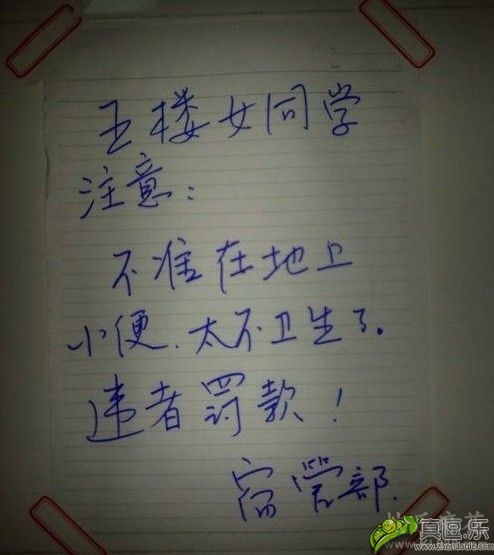 五楼女同学
注意：
不准在地上
小便.太不卫生了。
违者罚款！
宿管部.
真逗乐